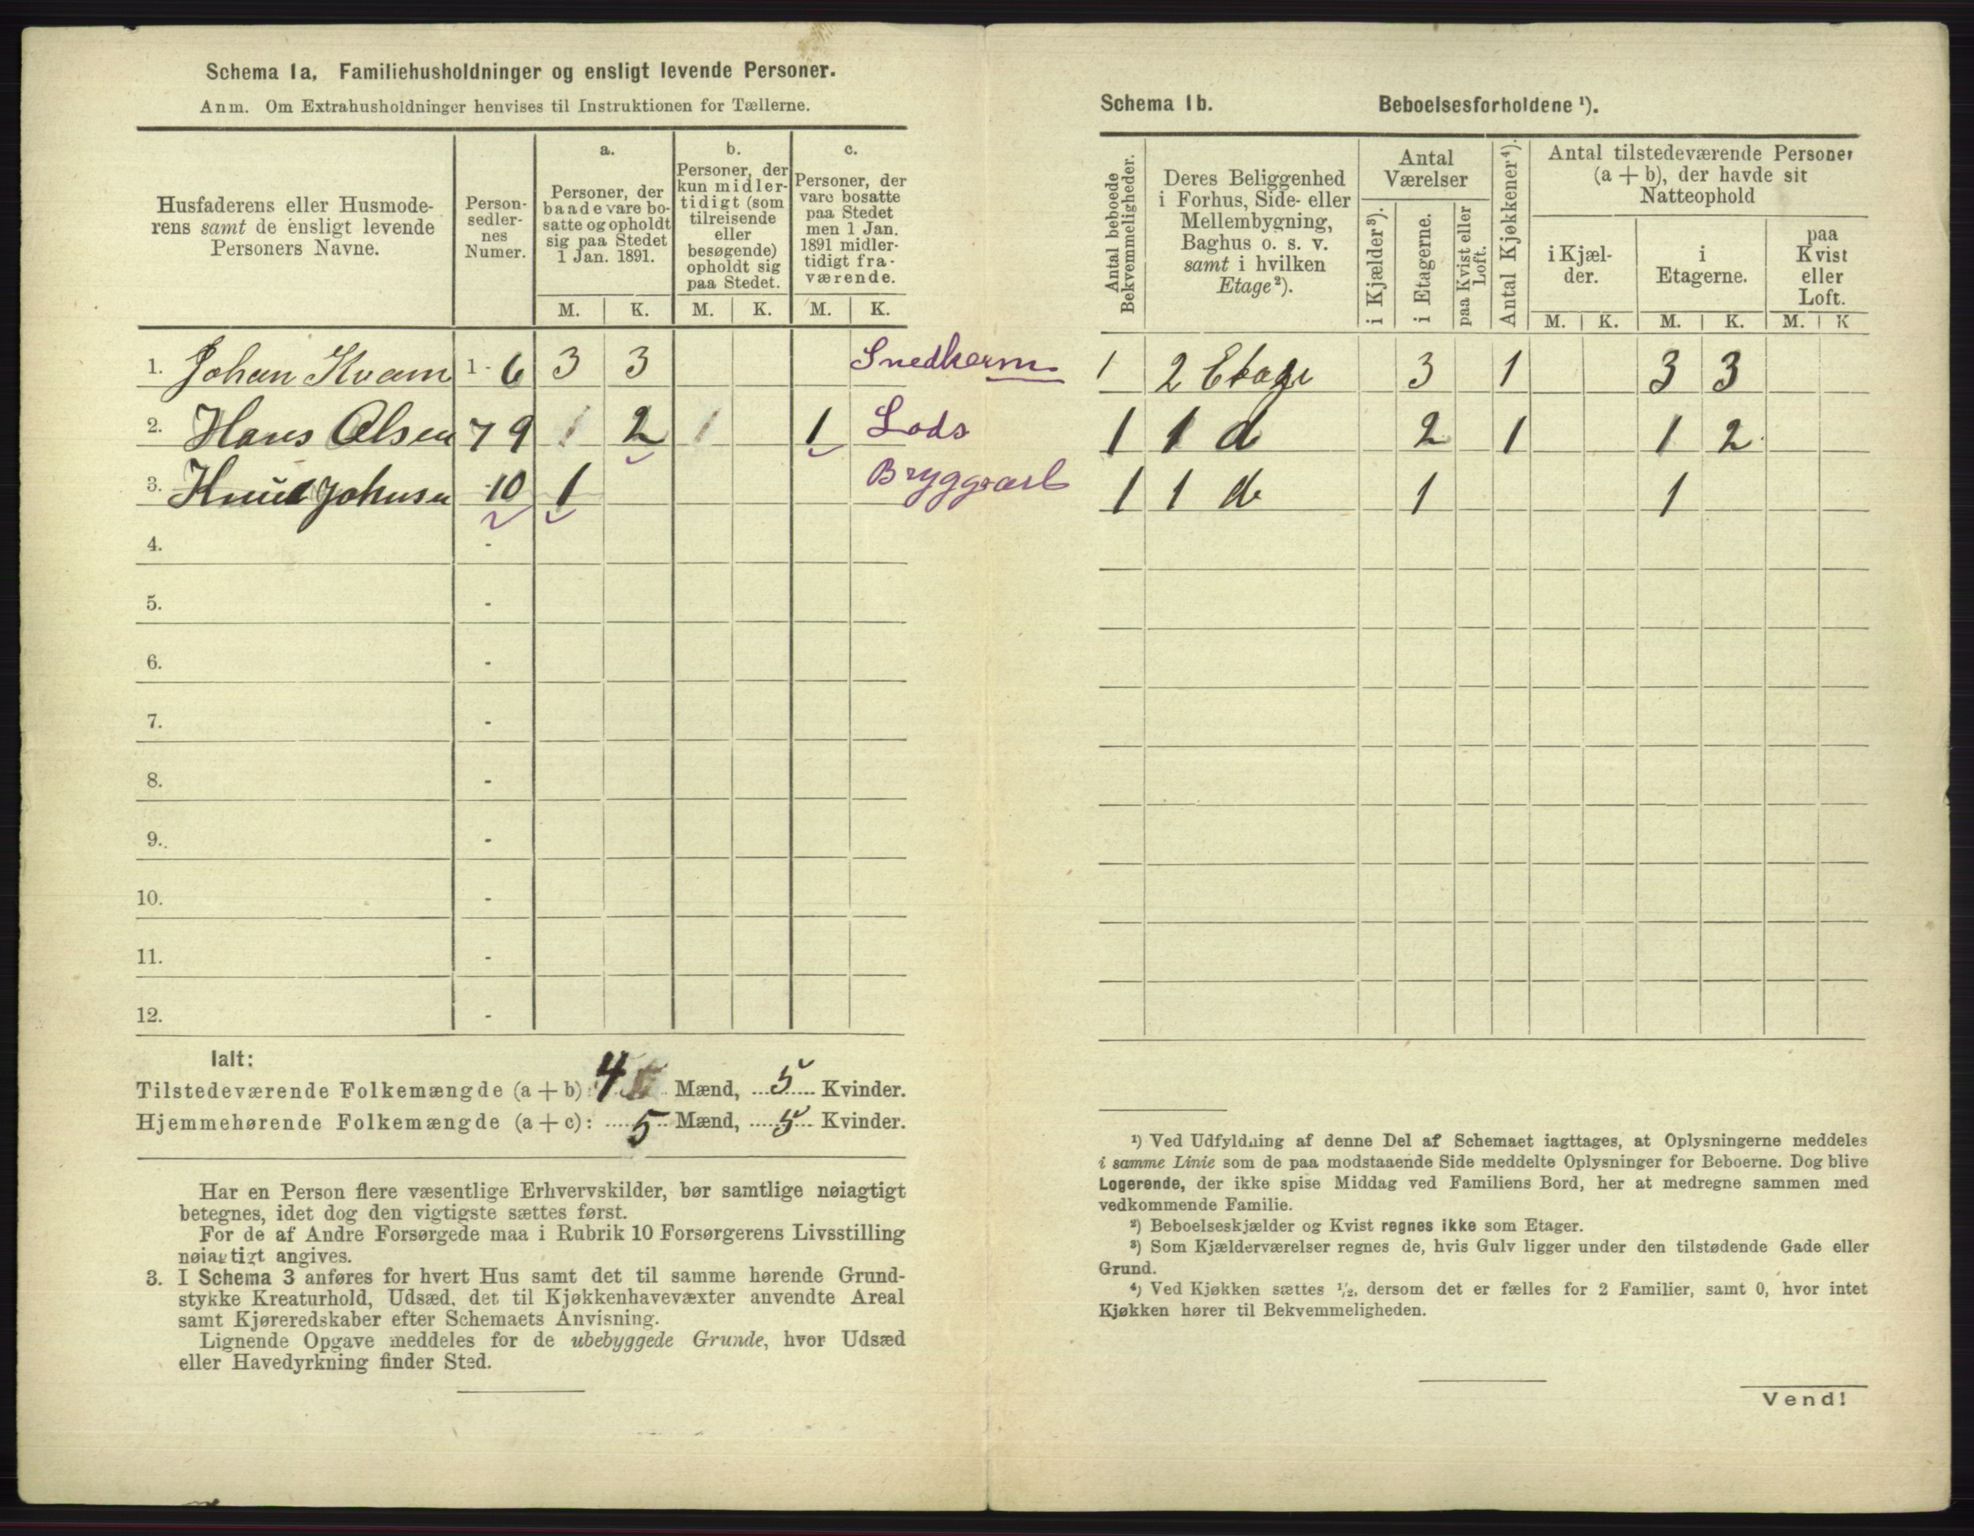 Schema 1a. Familiehusholdninger og ensligt levende Personer.
Anm. Om Extrahusholdninger henvises til Instruktionen for Tællerne.
Husfaderens eller Husmode-
rens samt de ensligt levende
Personers Navne.
Person-
sedler-
nes
Numer.
a.
Personer, der
baade vare bo-
satte og opholdt
sig paa Stedet
1 Jan. 1891.
b.
Personer, der
kun midler-
tidigt (som
tilreisende
eller
besøgende)
opholdt sig
paa Stedet.
c.
Personer, der
vare bosatte
paa Stedet
men 1 Jan.
1891 midler-
tidigt fra-
værende.
M. K. M. K. M. K.
1. Johan Kvam 1 - 6 3 3 Snedkerm
2. Hans Olsen 7 9 1 2 1 1 Lods
3. Knud Johnsen 10 1 Bryggearb
4. -
5. -
6. -
7. -
8. -
9. -
10. -
11. -
12. -
Ialt:
Tilstedeværende Folkemængde (a + b): 4 Mænd, 5 Kvinder.
Hjemmehørende Folkemængde (a + c): 5 Mænd, 5 Kvinder.
Har en Person flere væsentlige Erhvervskilder, bør samtlige nøiagtigt
betegnes, idet dog den vigtigste sættes først.
For de af Andre Forsørgede maa i Rubrik 10 Forsørgerens Livsstilling
nøiagtigt angives.
3. I Schema 3 anføres for hvert Hus samt det til samme hørende Grund-
stykke Kreaturhold, Udsæd, det til Kjøkkenhavevæxter anvendte Areal
samt Kjøreredskaber efter Schemaets Anvisning.
Lignende Opgave meddeles for de ubebyggede Grunde, hvor Udsæd
eller Havedyrkning finder Sted.
Schema 1b. Beboelsesforholdene ¹).
Antal beboede
Bekvemmeligheder.
Deres Beliggenhed
i Forhus, Side- eller
Mellembygning,
Baghus o. s. v.
samt i hvilken
Etage²).
Antal
Værelser
i Kjælder³).
i Etagerne.
paa Kvist eller
Loft.
Antal Kjøkkener⁴).
Antal tilstedeværende Personer
(a + b), der havde sit
Natteophold
i Kjæl-
der.
i
Etagerne.
paa
Kvist
eller
Loft.
M. K. M. K. M. K
1 2 Etage 3 1 3 3
1 1 d 2 1 1 2
1 1 d 1 1
¹) Ved Udfyldning af denne Del af Schemaet iagttages, at Oplysningerne meddeles
i samme Linie som de paa modstaaende Side meddelte Oplysninger for Beboerne. Dog blive
Logerende, der ikke spise Middag ved Familiens Bord, her at medregne sammen med
vedkommende Familie.
²) Beboelseskjælder og Kvist regnes ikke som Etager.
³) Som Kjælderværelser regnes de, hvis Gulv ligger under den tilstødende Gade eller
Grund.
⁴) Ved Kjøkken sættes ¹/₂, dersom det er fælles for 2 Familier, samt 0, hvor intet
Kjøkken hører til Bekvemmeligheden.
Vend!